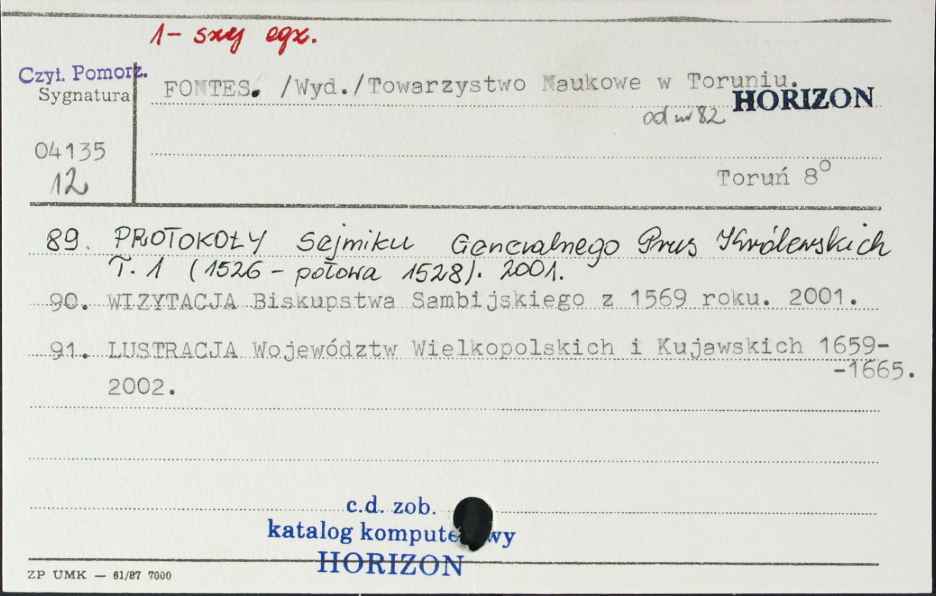 1-szy egz.
Czyt. Pomorz.
Sygnatura
FONTES. /Wyd./Towarzystwo Naukowe w Toruniu.
od nr 82 HORIZON
04135
12
Toruń 8°
89. PROTOKOŁY Sejmiku Generalnego Prus Królewskich
T. 1 (1526 - połowa 1528). 2001.
90. WIZYTACJA Biskupstwa Sambijskiego z 1569 roku. 2001.
91. LUSTRACJA Województw Wielkopolskich i Kujawskich 1659-
-1665.
2002.
c.d. zob.
katalog komputerowy
HORIZON
ZP UMK — 61/87 7000